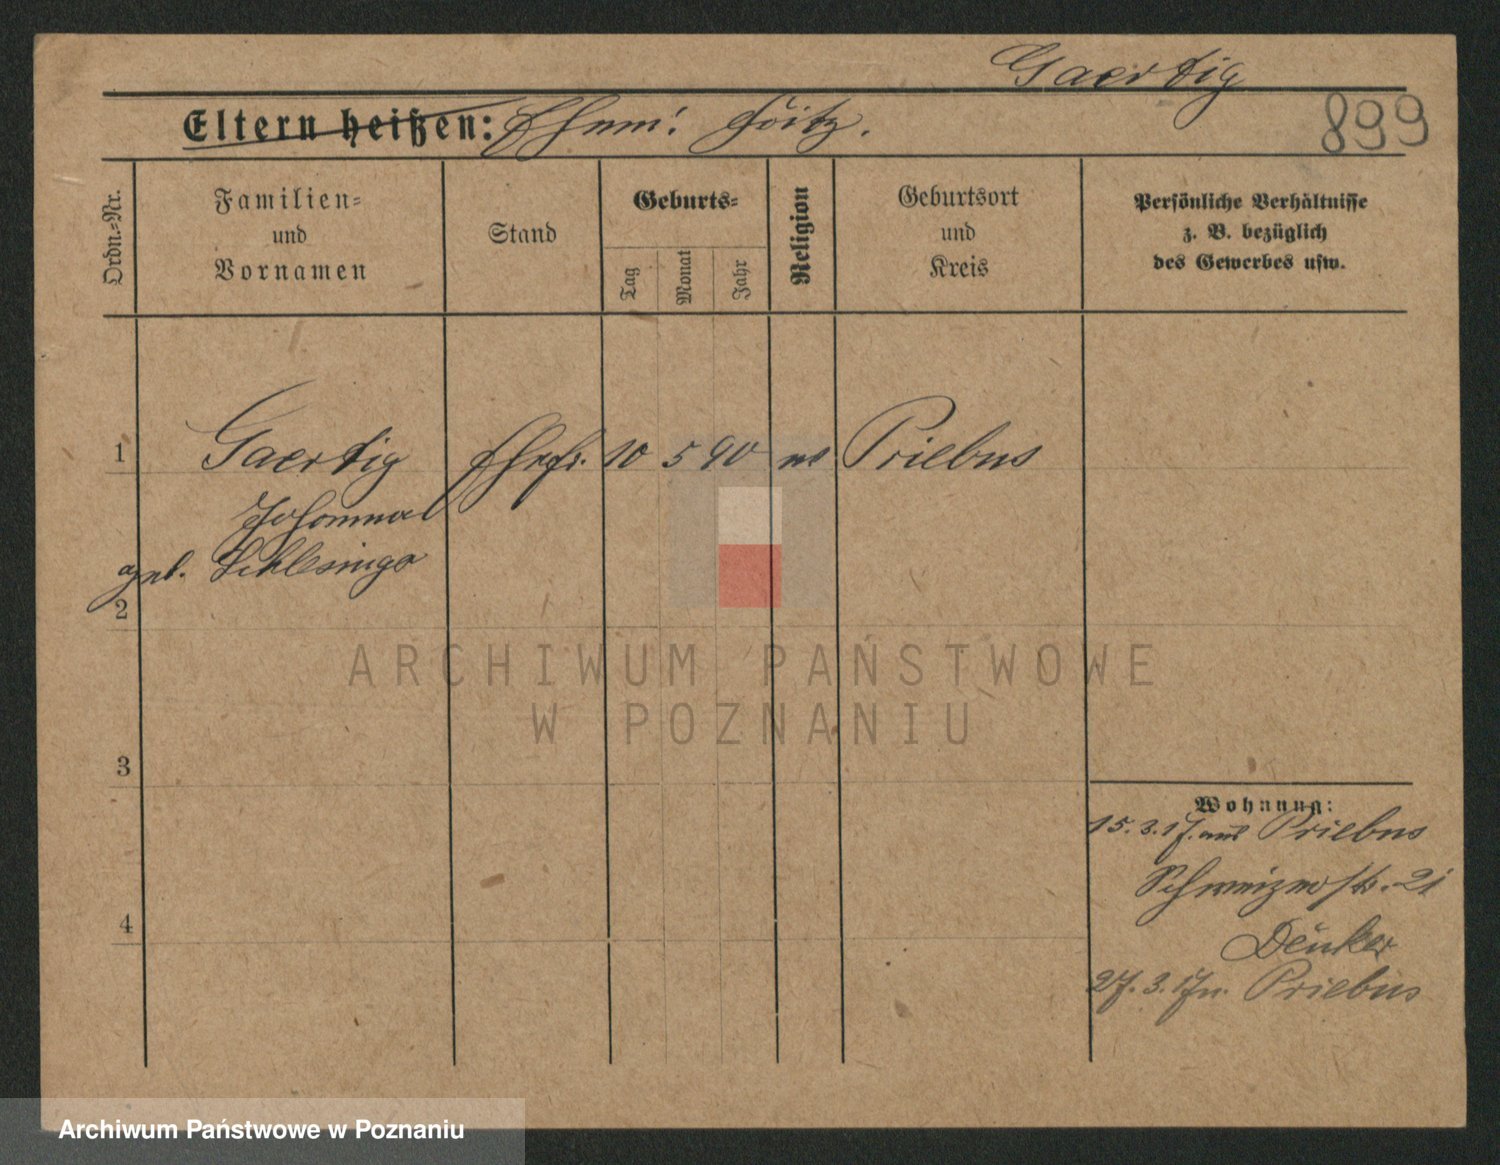 Gaertig
Eltern heißen: Ehem: Fritz.
899
Ordn.-Nr.
Familien-
und
Vornamen
Stand
Geburts-
Tag
Monat
Jahr
Religion
Geburtsort
und
Kreis
Persönliche Verhältnisse
z. B. bezüglich
des Gewerbes usw.
1
Gaertig Ehefr. 10 5 90 Priebus
Johanna
geb.
2
ARCHIWUM PAŃSTWOWE
W POZNANIU
3
Wohnung:
15.3.17. aus Priebus
21
4
27.3.17 n. Priebus
Archiwum Państwowe w Poznaniu